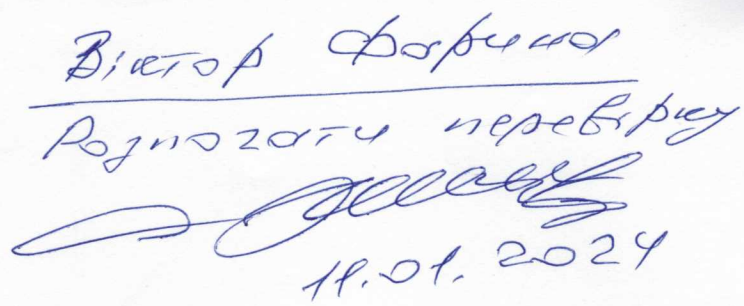 Віктор Фарина
Розпочати перевірку
11.01.2024